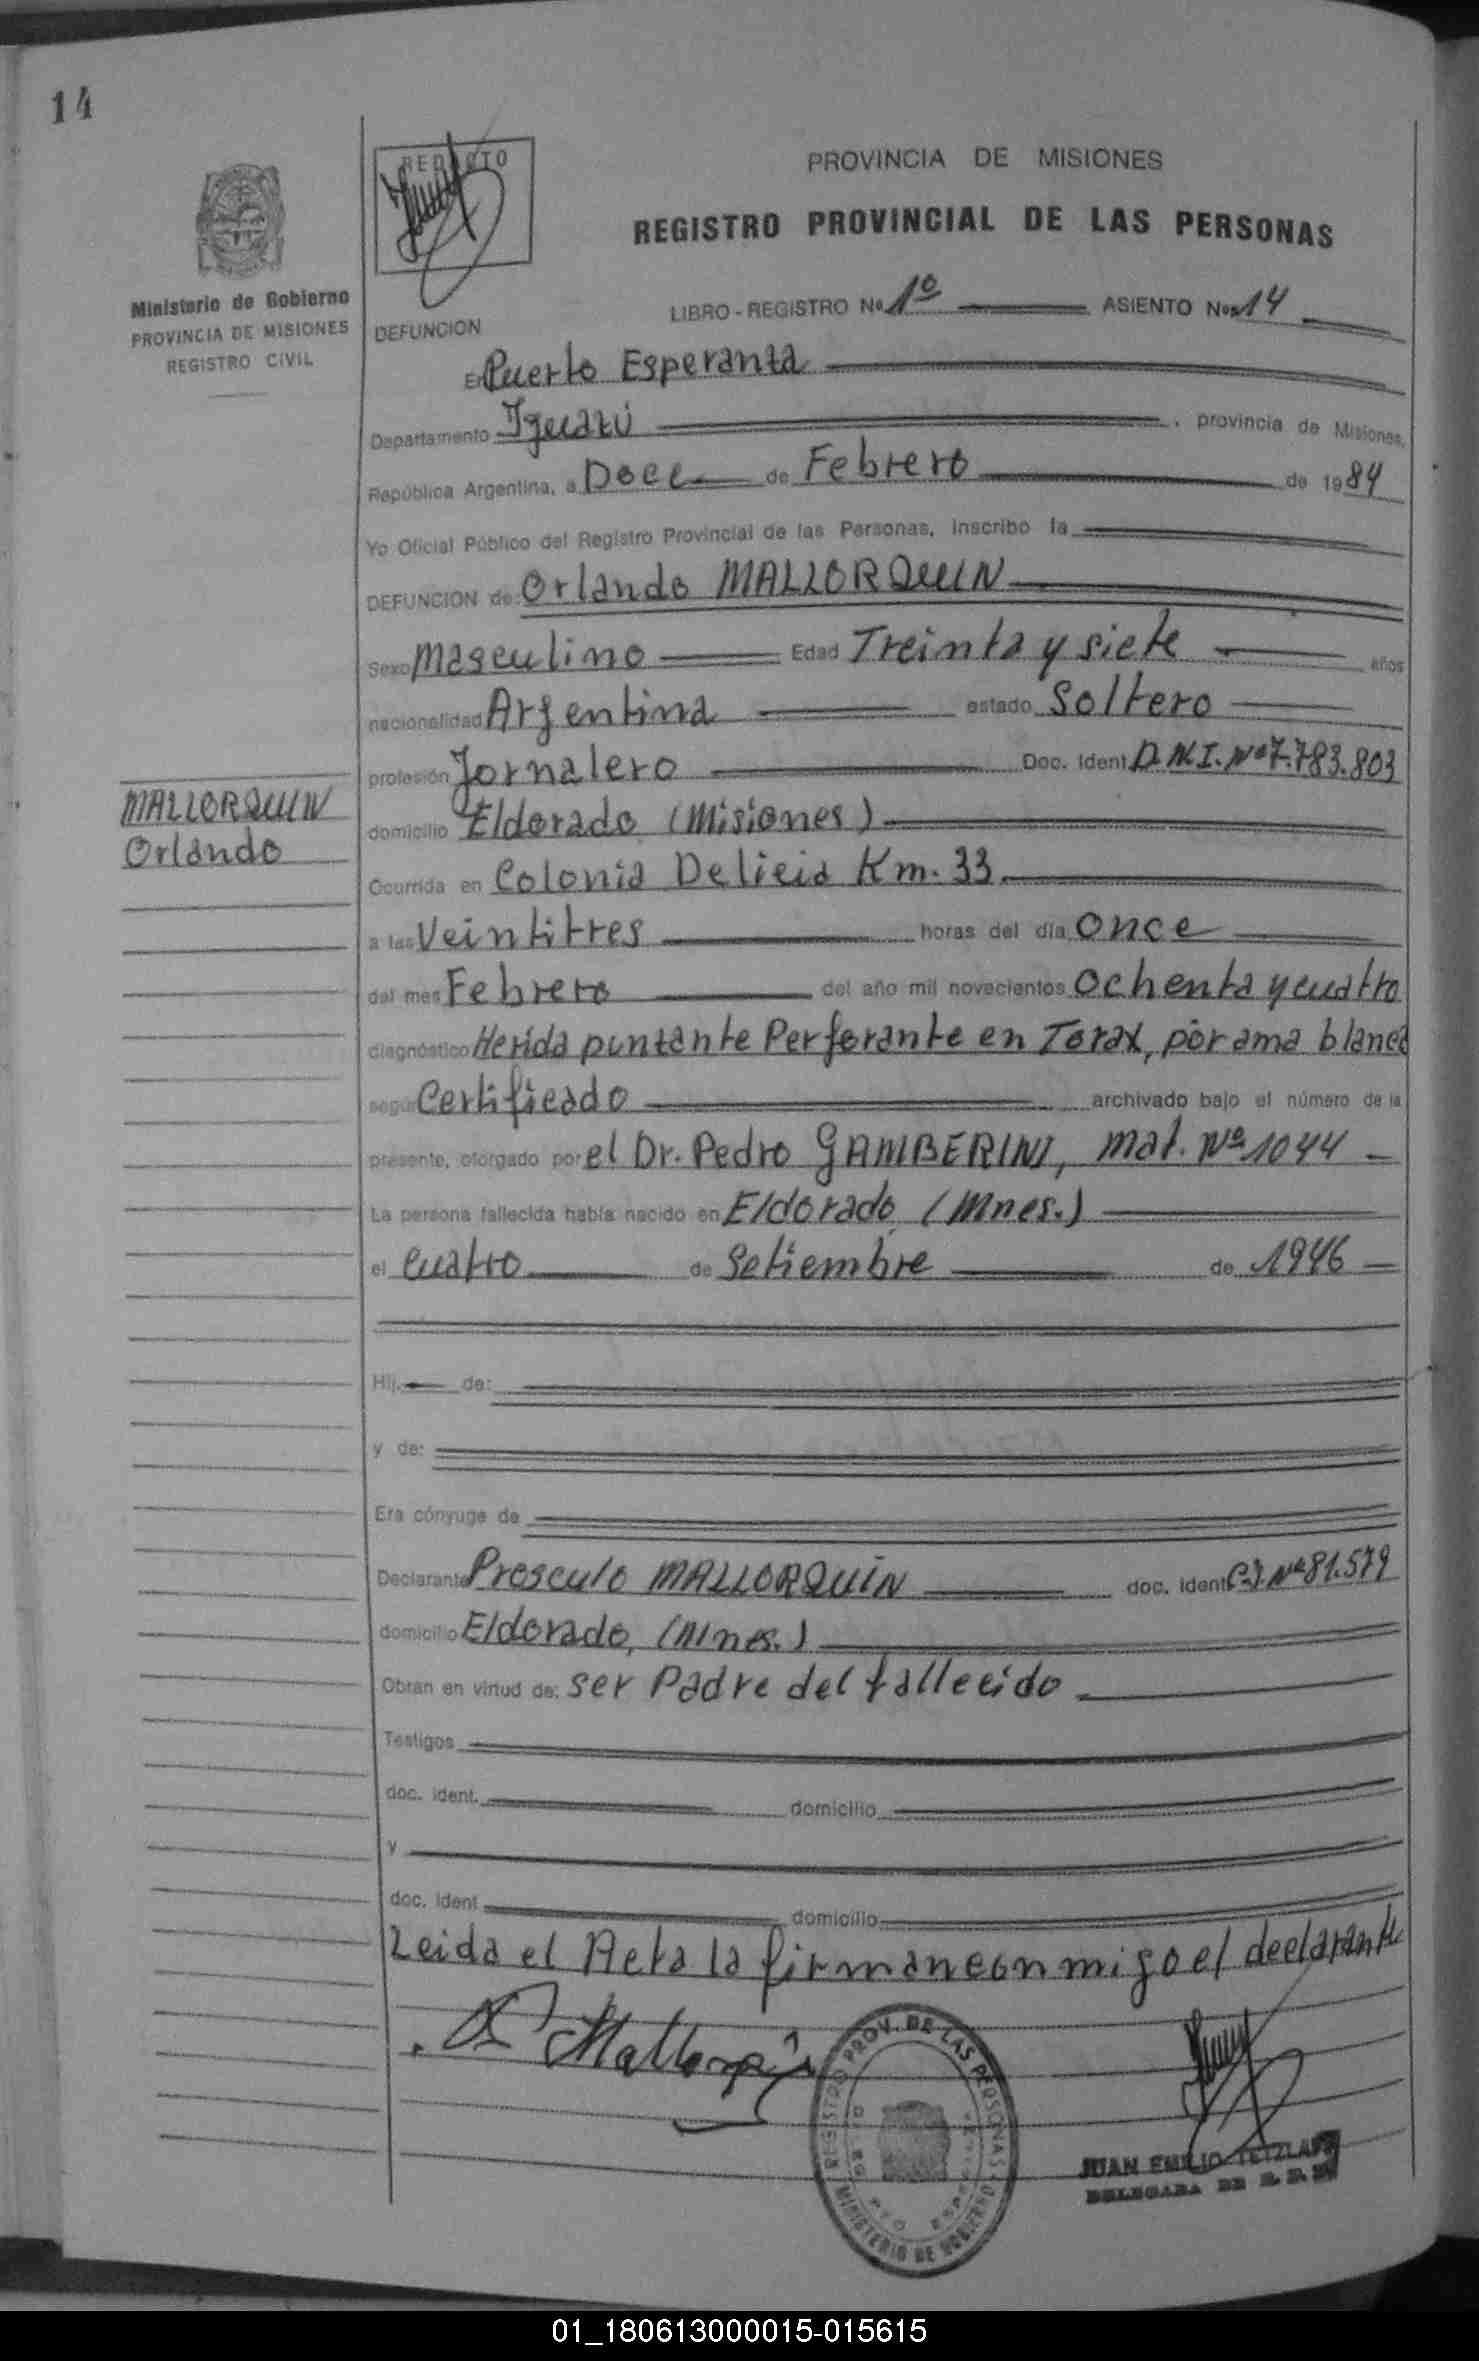 14
REDACTO
PROVINCIA DE MISIONES
REGISTRO PROVINCIAL DE LAS PERSONAS
Ministerio de Gobierno
PROVINCIA DE MISIONES
REGISTRO CIVIL
LIBRO - REGISTRO No. 1º ASIENTO No. 14
DEFUNCION
En Puerto Esperanza
Departamento Iguazú, provincia de Misiones,
República Argentina, a Doce de Febrero de 1984
Yo Oficial Público del Registro Provincial de las Personas, inscribo la
DEFUNCION de: Orlando MALLORQUIN
Sexo Masculino Edad Treinta y siete años
nacionalidad Argentina estado Soltero
profesión Jornalero Doc. Ident. D.N.I. Nº 7.783.803
MALLORQUIN
Orlando
domicilio Eldorado (Misiones)
Ocurrida en Colonia Delicia Km. 33
a las Veintitres horas del día once
del mes Febrero del año mil novecientos ochenta y cuatro
diagnóstico Herida punzante Perforante en Torax, por ama blanca
según Certificado archivado bajo el número de la
presente, otorgado por el Dr. Pedro GAMBERINI, mat. Nº 1044
La persona fallecida había nacido en Eldorado (Mnes.)
el cuatro de Setiembre de 1946
Hij de:
y de:
Era cónyuge de
Declarante Prosculo MALLORQUIN doc. ident. C.I. Nº 81.579
domicilio Eldorado, (Mnes.)
Obran en virtud de: ser Padre del fallecido
Testigos
doc. ident. domicilio
y
doc. ident. domicilio
Leida el Acta la firman conmigo el declarante
REGISTRO PROV. DE LAS PERSONAS
MINISTERIO DE GOBIERNO
JUAN EMILIO TETZLAFF
DELEGADA DE
01_180613000015-015615